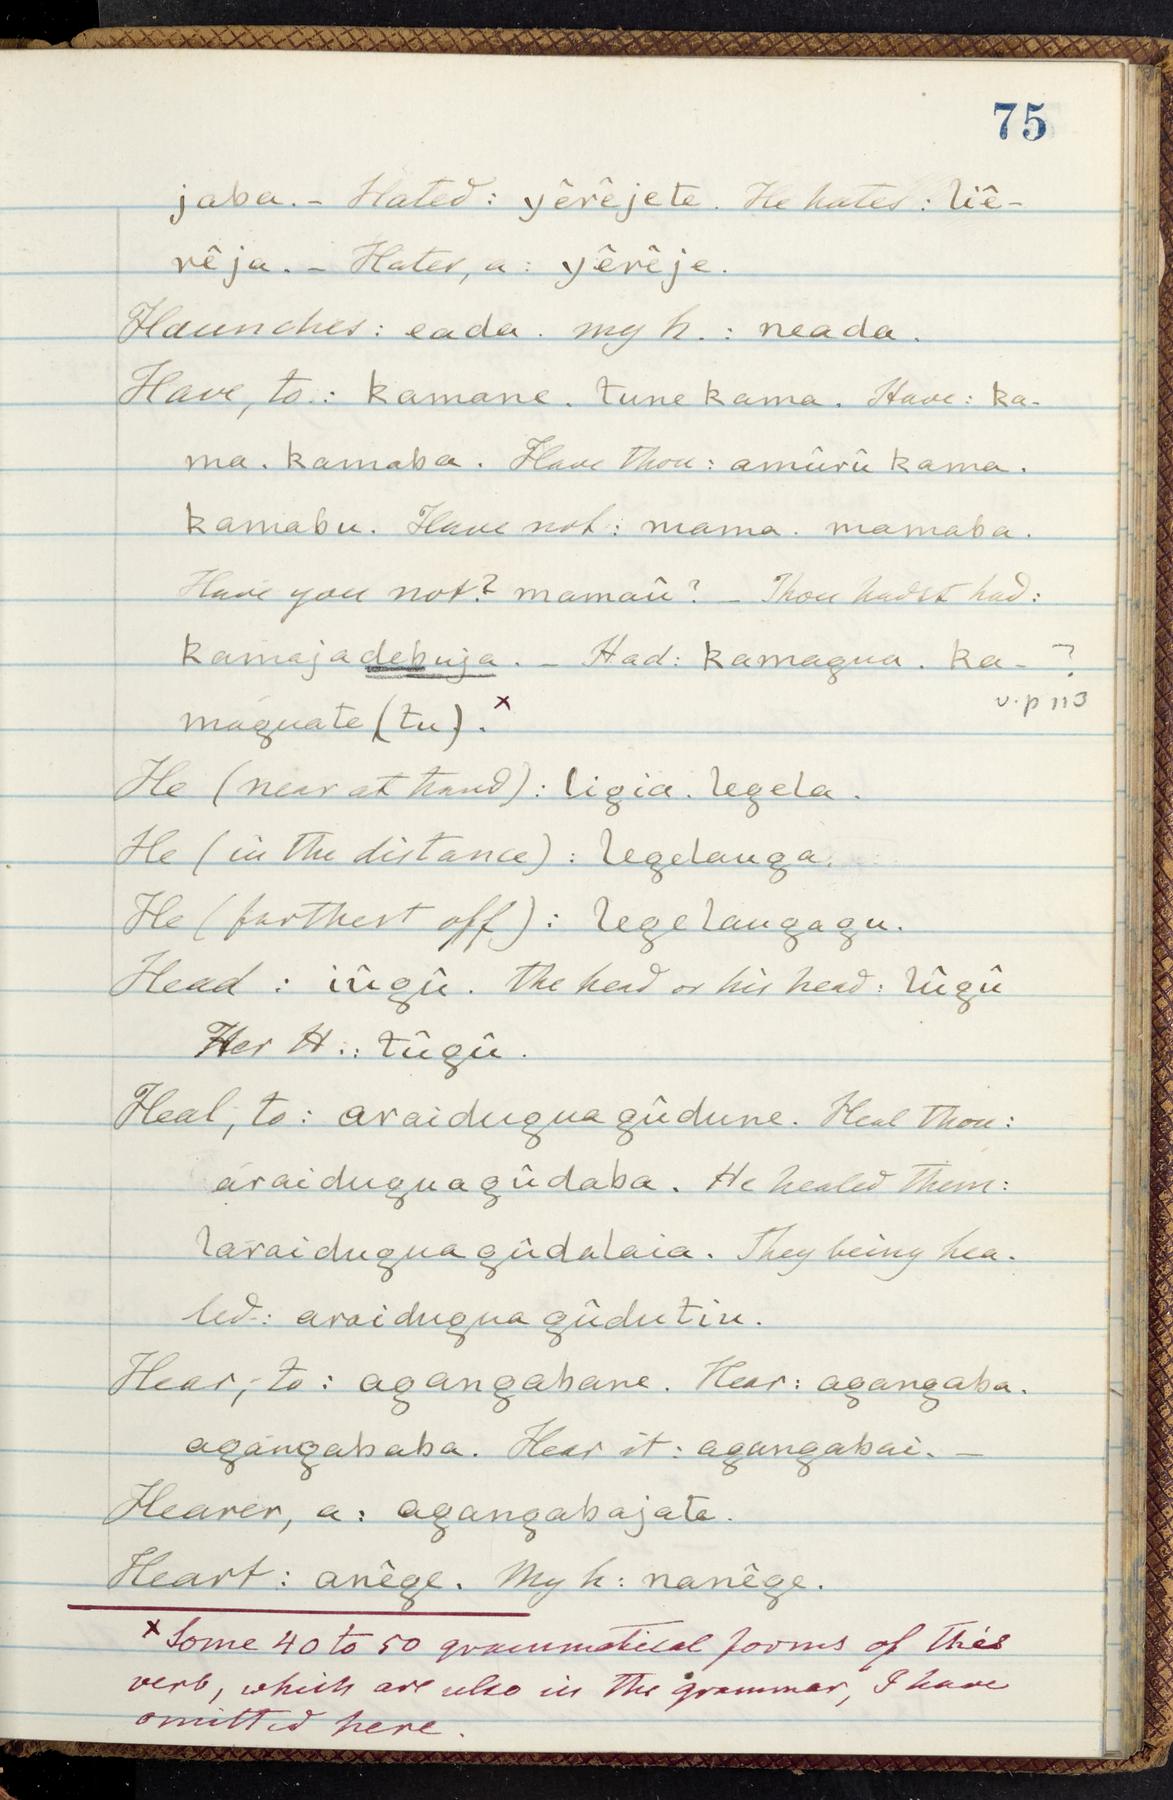 75
jaba. – Hated: yêrêjete. He hates: liê-
rêja. – Hater, a: yêrêje.
Haunches: eada. my h.: neada.
Have, to: kamane. tune kama. Have: ka-
ma. kamaba. Have thou: amûrû kama.
kamabu. Have not: mama. mamaba.
Have you not? mamaû? – Thou hadst had:
kamajadebuja. – Had: kamagua. ka- ?
maguate (tu). x v. p 113
He (near at hand): ligia. legela.
He (in the distance): legelauga.
He (furthest off): legelaugagu.
Head: iûgû. the head or his head: lûgû
Her H.: tûgû.
Heal, to: araiduguagûdune. Heal thou:
araiduguagûdaba. He healed them:
laraiduguagûdalaia. They being hea-
led: araiduguagûdutiu.
Hear, to: agangabane. Hear: agangaba.
agangababa. Hear it: agangabai. –
Hearer, a: agangabajate.
Heart: anêge. My h: nanêge.
x Some 40 to 50 grammatical forms of this
verb, which are also in the grammar, I have
omitted here.